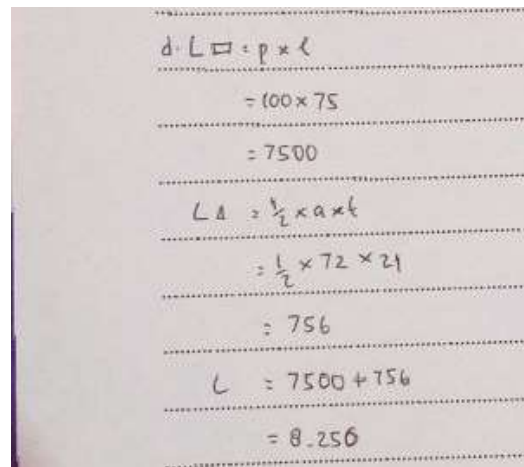 d. L ▭ = p × l
= 100 × 75
= 7500
L Δ = 1/2 × a × t
= 1/2 × 72 × 21
= 756
L = 7500 + 756
= 8.256